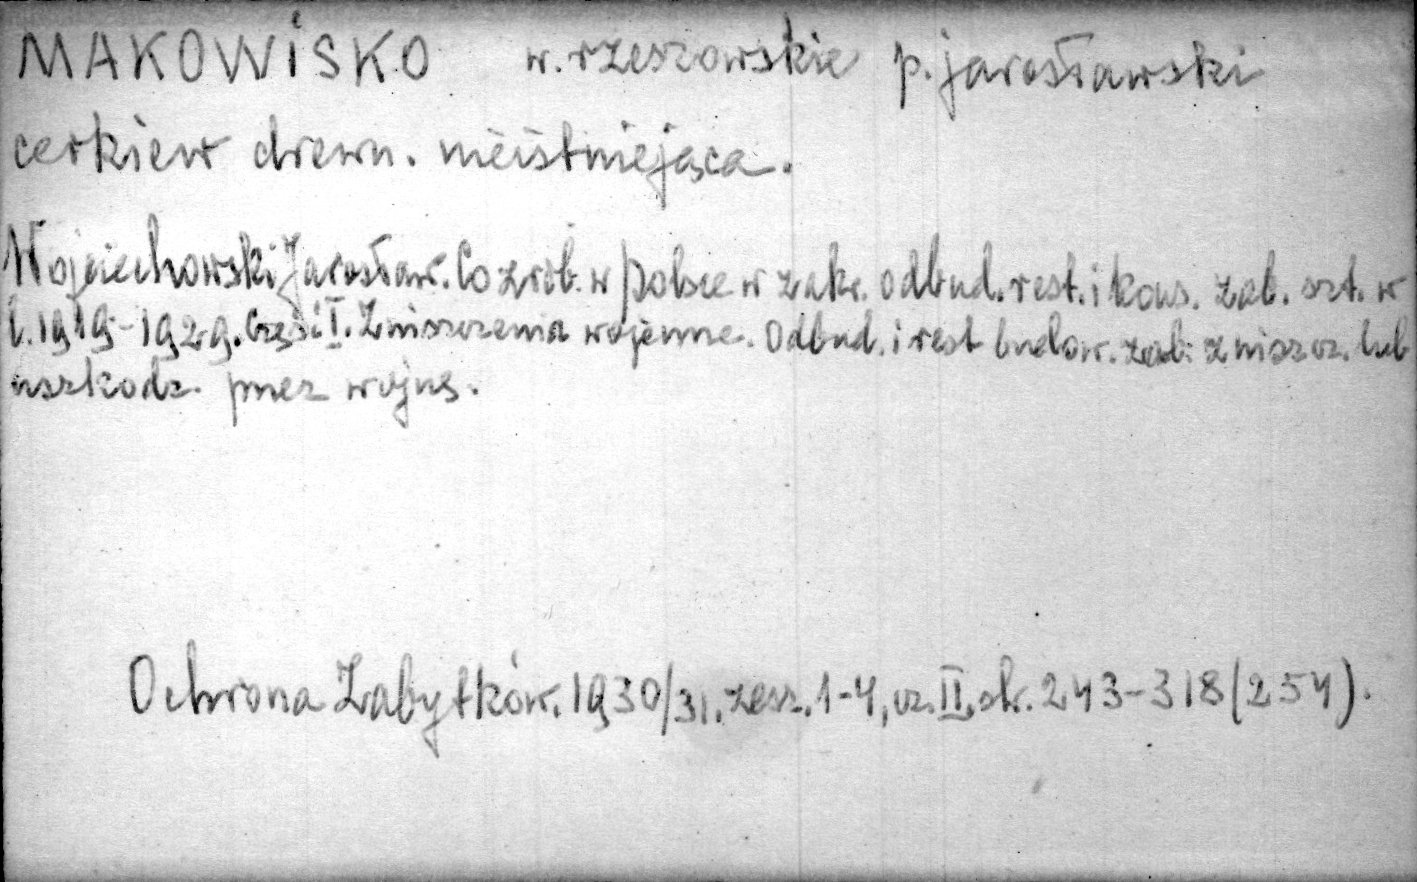 MAKOWISKO w. rzeszowskie p. jarosławski
cerkiew drewn. nieistniejąca.
Wojciechowski Jarosław. Co zrob. w Polsce w zakr. odbud. rest. i kons. zab. szt. w
l. 1919-1929. Część I. Zniszczenia wojenne. Odbud. i rest budow. zab. zniszcz. lub
uszkodz. przez wojnę.
Ochrona Zabytków. 1930/31. zesz. 1-4, cz. II, str. 243-318 (254).